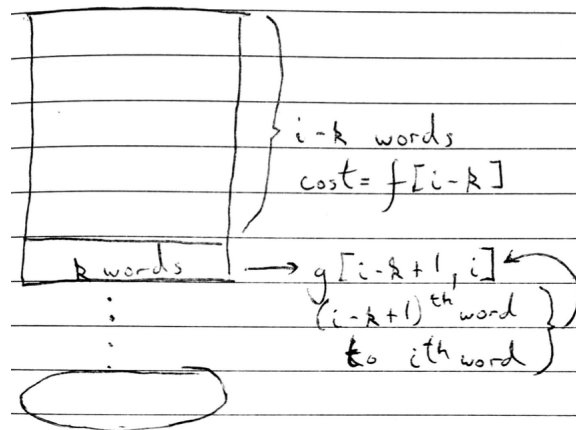 i-k words
cost = f[i-k]
k words → g[i-k+1, i]
(i-k+1)th word
to ith word